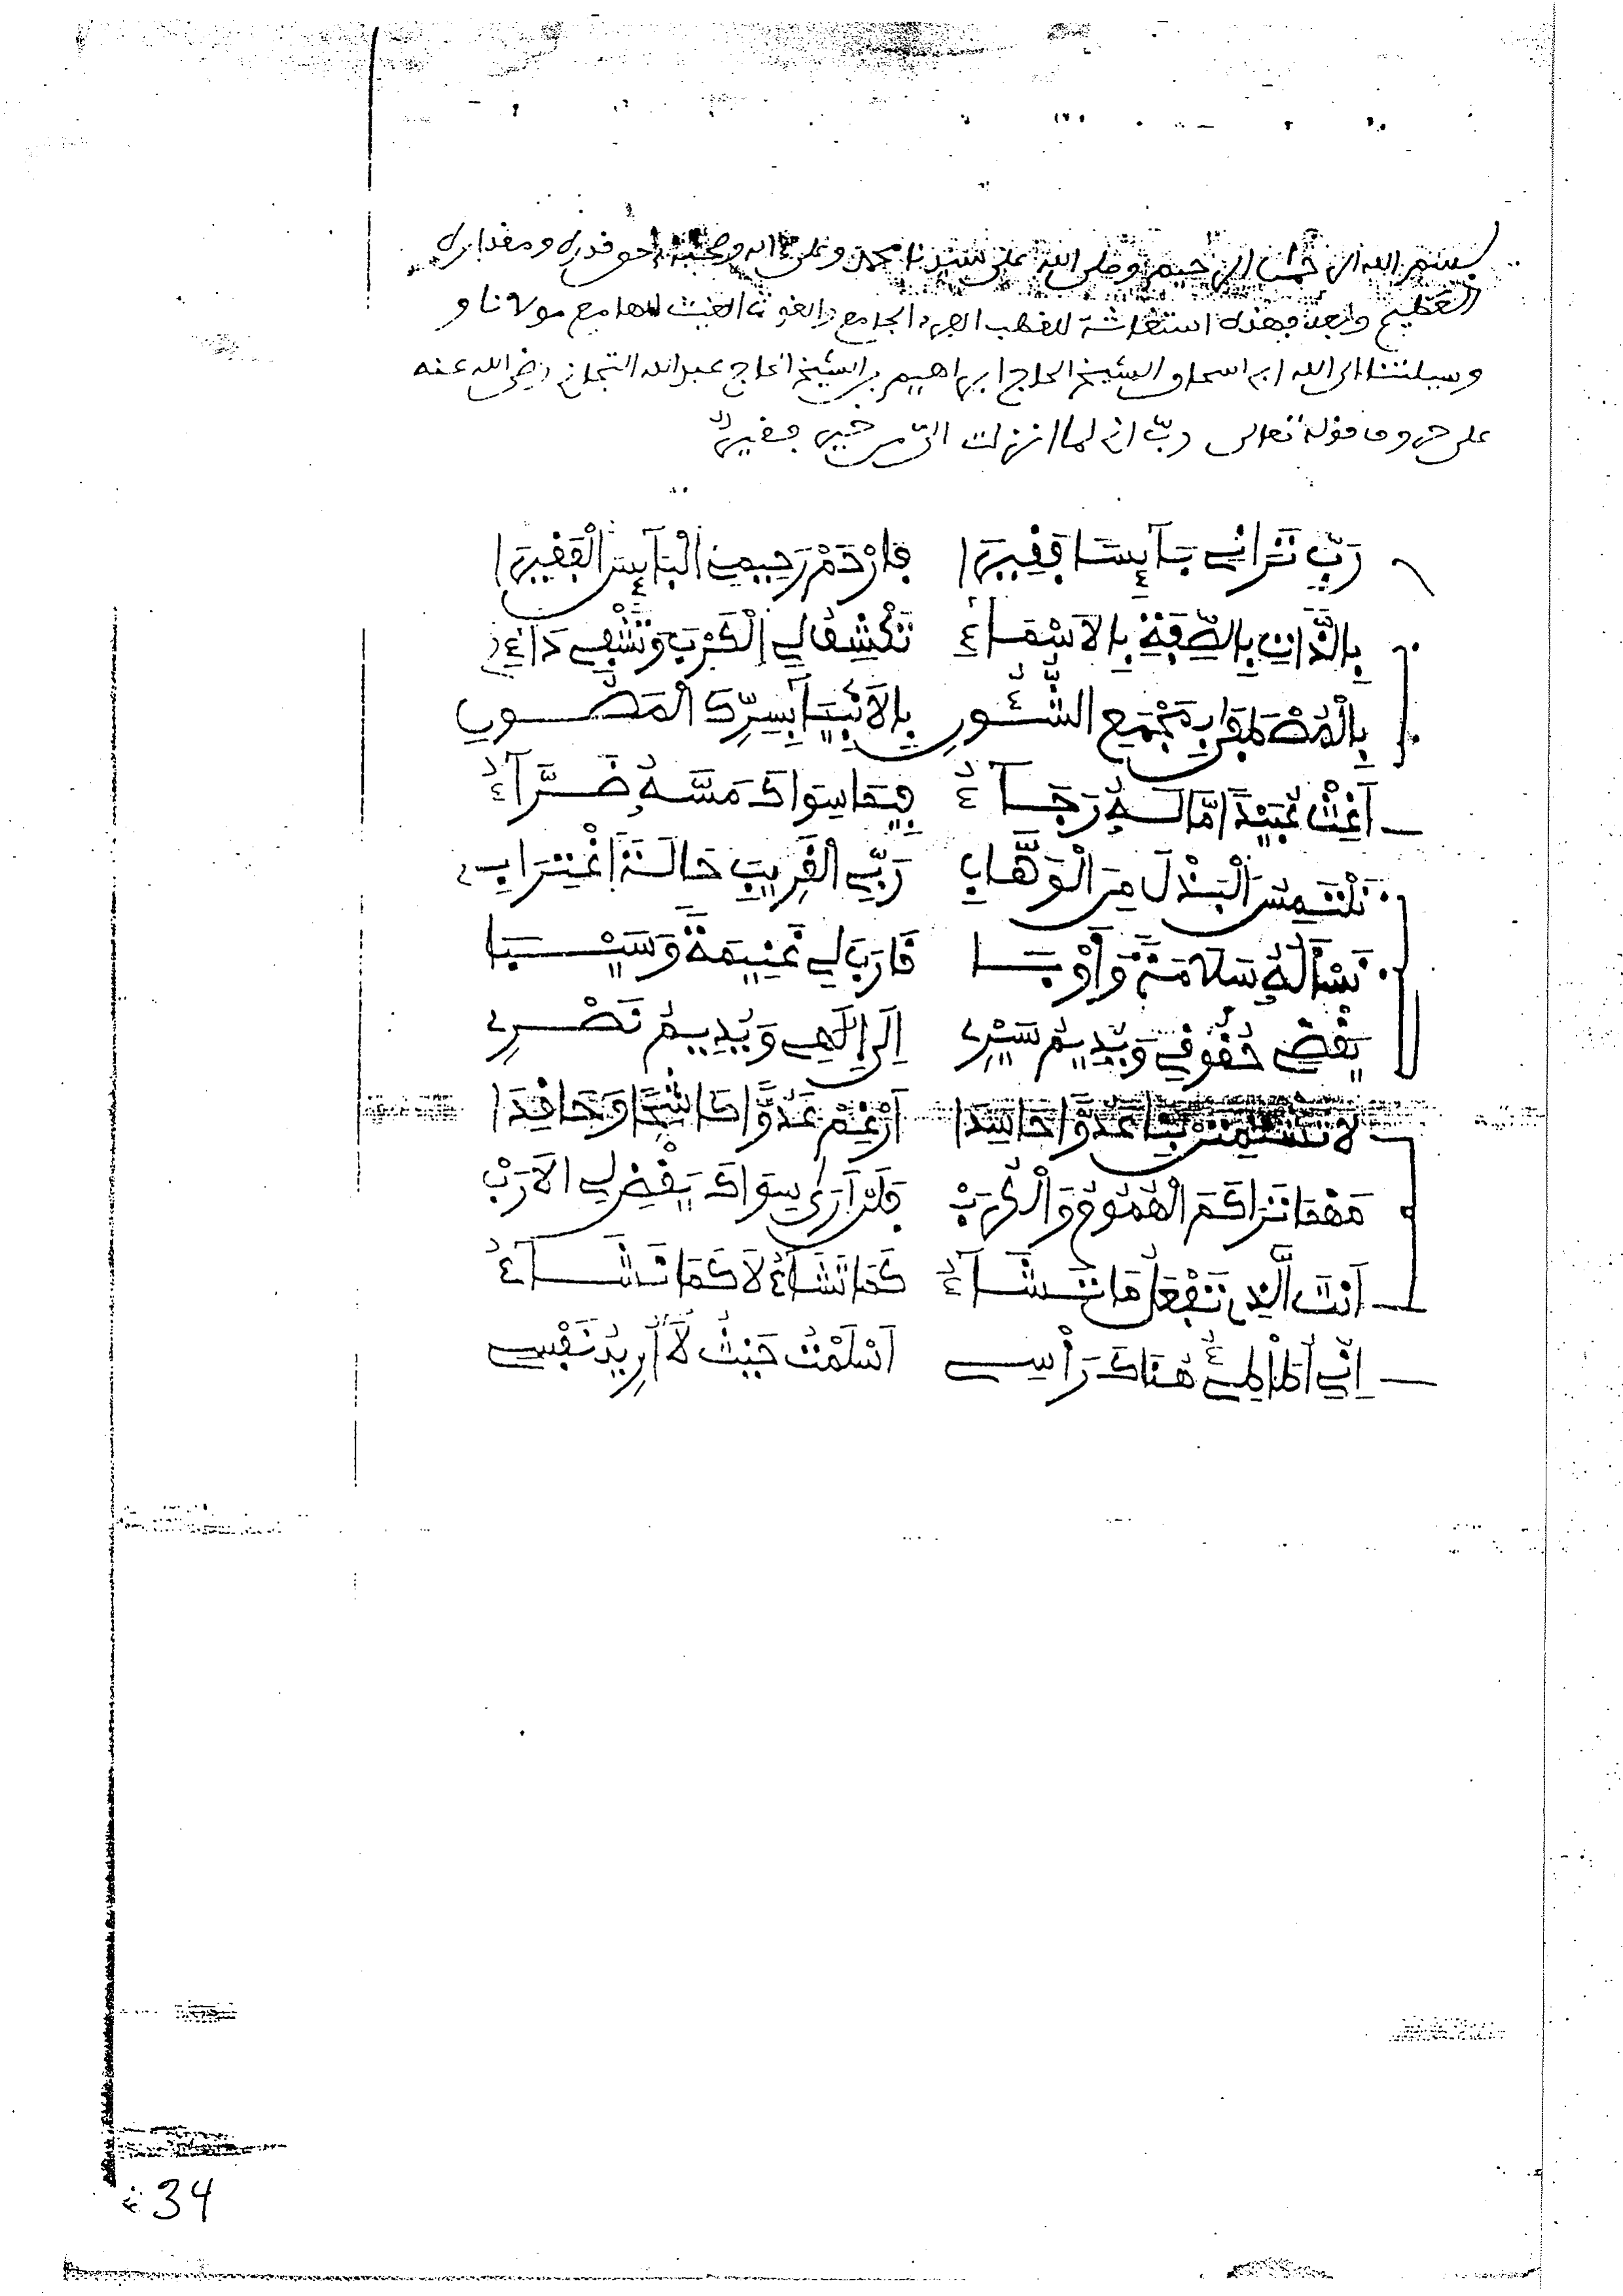 بسم الله الرحمن الرحيم وصلى الله على سيدنا محمد وعلى ءاله وصحبه حق قدره ومقداره
العظيم وبعد فهذه استغاثة للقطب الفرد الجامع والغوث الغيث الهامع مولانا و
وسيلتنا الى الله ابى اسحاق الشيخ الحاج ابراهيم بن الشيخ الحاج عبد الله التجاني رضي الله عنه
على حروف قوله تعالى ربّ انى لما انزلت الىّ من خير فقيرٌ
رَبِّ تَرَانِي بَآئِسًا فَقِيرَا فَارْحَمْ رَحِيمِي الْبَآئِسَ الْفَقِيرَا
بِالذَّاتِ بِالصِّفَةِ بِالاَسْمَاءِ تَكْشِفُ لِي الْكَرْبَ وَتَشْفِي دَائِي
بِالْمُصْطَفَى بِمَجْمَعِ الشُّئُونِ بِالاَنْبِيَا بِسِرِّكَ الْمَصُونِ
اَغِثْ عُبَيْدًا مَّا لَهُ رَجَآءُ فِيمَا سِوَاكَ مَسَّهُ ضَرَّآءُ
نَلْتَمِسُ الْبَذْلَ مِنَ الْوَهَّابِ رَبِّي الْقَرِيبِ حَالَةَ اغْتِرَابِي
نَسْأَلُهُ سَلاَمَةً وَأَوْبَا قَارَبَ لِي غَنِيمَةً وَسَيْبَا
يَقْضِي حُقُوقِي وَيُدِيمُ سَيْرِي اِلَى اِلَهِي وَيُدِيمُ نَصْرِي
لاَ تُشْمِتَنْ بِنَا عَدُوًّا حَاسِدَا اَرْغِمْ عَدُوًّا كَاشِحًا وَحَاقِدَا
مَهْمَا تَرَاكَمَ الْهُمُومُ وَالْكُرَبْ فَلَنْ اَرَى سِوَاكَ يَقْضِ لِي الاَرَبْ
اَنْتَ الَّذِي تَفْعَلُ مَا تَشَآءُ كَمَا تَشَآءُ لاَ كَمَا نَشَآءُ
اِنِّي اُطَاطِئُ هُنَاكَ رَأْسِي اَسْلَمْتُ حَيْثُ لآَ اُرِيدُ نَفْسِي
34